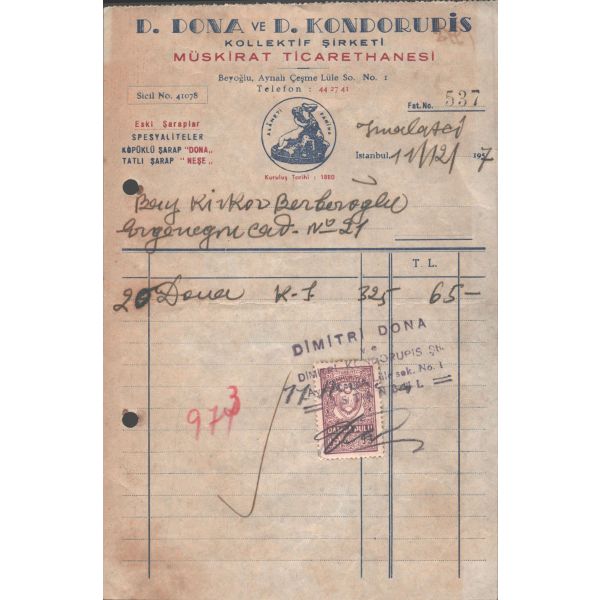 D. DONA VE D. KONDORUPİS
KOLLEKTİF ŞİRKETİ
MÜSKİRAT TİCARETHANESİ
Beyoğlu, Aynalı Çeşme Lüle So. No. 1
Telefon : 44 27 41
Sicil No. 41078
Fat. No. 537
Eski Şaraplar
SPESYALİTELER
KÖPÜKLÜ ŞARAP "DONA,,
TATLI ŞARAP "NEŞE,,
ALÂMETİ FARİKA
Kuruluş Tarihi : 1880
İmalatci
İstanbul, 11/12/1957
Bay Kirkor Berberoğlu
Ergenegon cad. No 21
T. L.
20 Dona K-1 325 65-
DİMİTRİ DONA
ve
DİMİTRİ KONDORUPİS Şti.
Lüle sok. No. 1
973